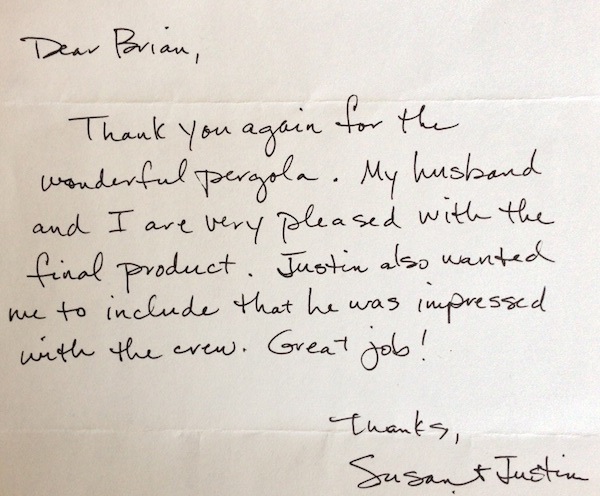 Dear Brian,
Thank you again for the
wonderful pergola. My husband
and I are very pleased with the
final product. Justin also wanted
me to include that he was impressed
with the crew. Great job!
Thanks,
Susan + Justin